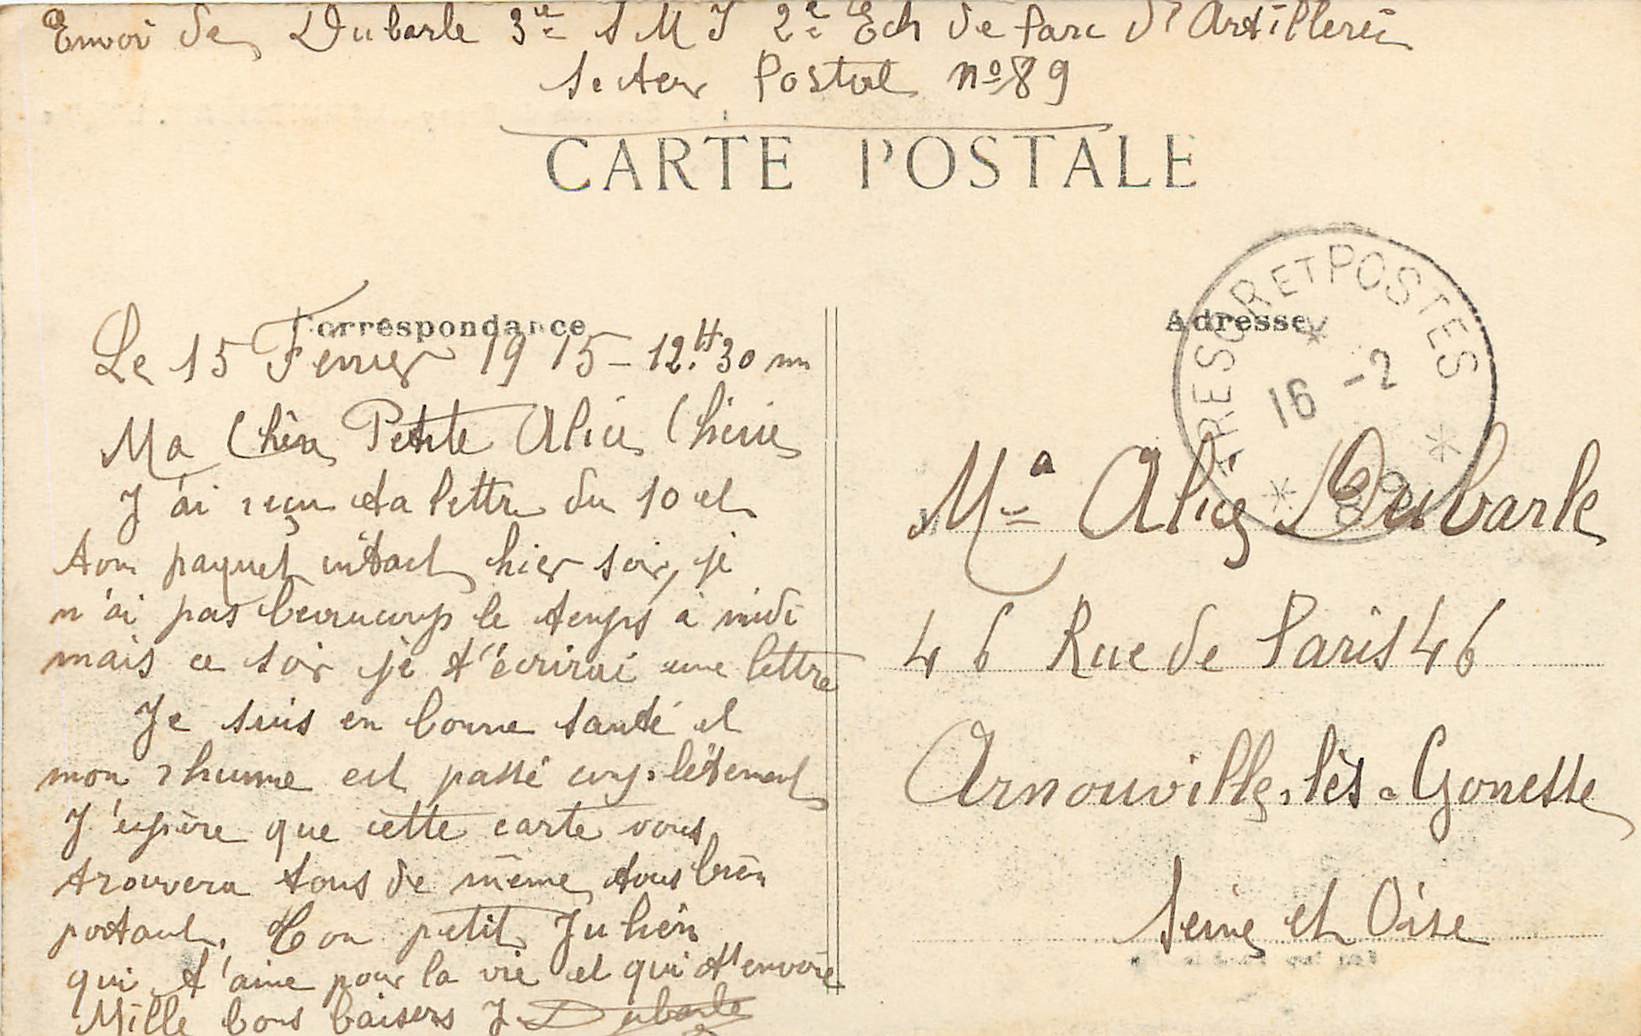 Envoi de Dubarle 3e S M I 2e Ech de Parc d'Artillerie
Secteur Postal no 89
CARTE POSTALE
Correspondance
Le 15 Fevrier 1915 - 12.H 30 m
Ma Chère Petite Alice Chérie
J'ai reçu ta lettre du 10 et
ton paquet intact hier soir, je
n'ai pas beaucoup le temps à midi
mais ce soir je t'écrirai une lettre
Je suis en bonne santé et
mon rhume est passé complètement
J'espère que cette carte vous
trouvera tous de même tous bien
portant. Ton petit Julien
qui t'aime pour la vie et qui t'envoie
Mille bons baisers J Dubarle
Adresse
TRESOR ET POSTES
16 -2
* 89 *
Ma Alice Dubarle
46 Rue de Paris 46
Arnouville-lès-Gonesse
Seine et Oise